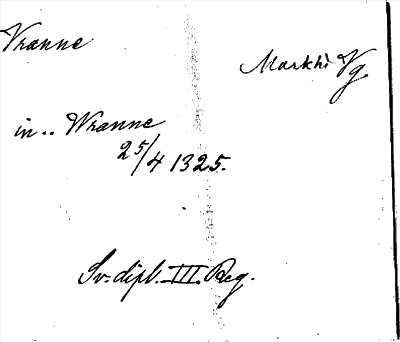 Vranne
Markhi Vg
in.. Wranne
25/4 1325.
Sv. dipl. III. Reg.